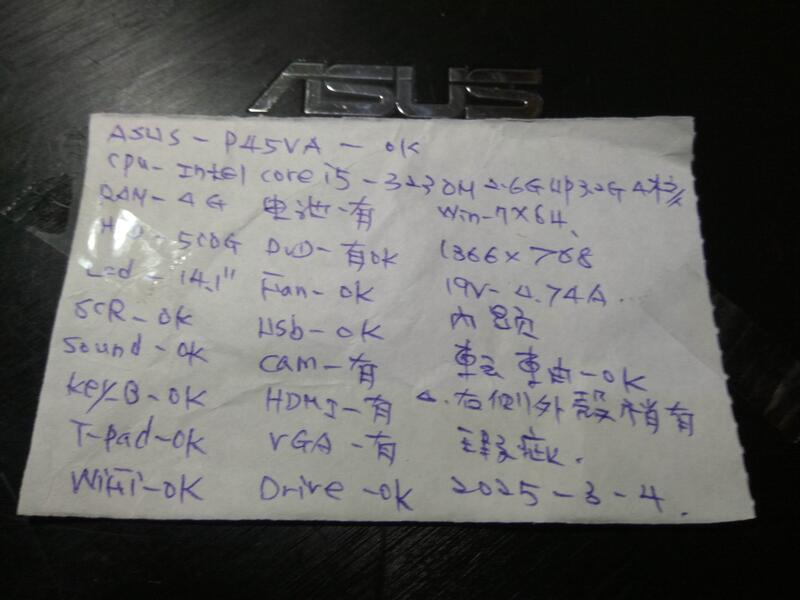 ASUS
ASUS - P45VA - OK
Cpu - Intel core i5 - 3230M 2.6G up 3.2G 4核
RAM - 4G 電池 - 有 Win-7X64.
HDD - 500G DVD - 有OK 1366 x 768
Lcd - 14.1" Fan - OK 19V - 4.74A.
SCR - OK Usb - OK 內顯
Sound - OK Cam - 有 - OK
Key-B - OK HDMI - 有 右側外殼稍有
T-pad - OK VGA - 有
WiFi - OK Drive - OK 2025 - 3 - 4.